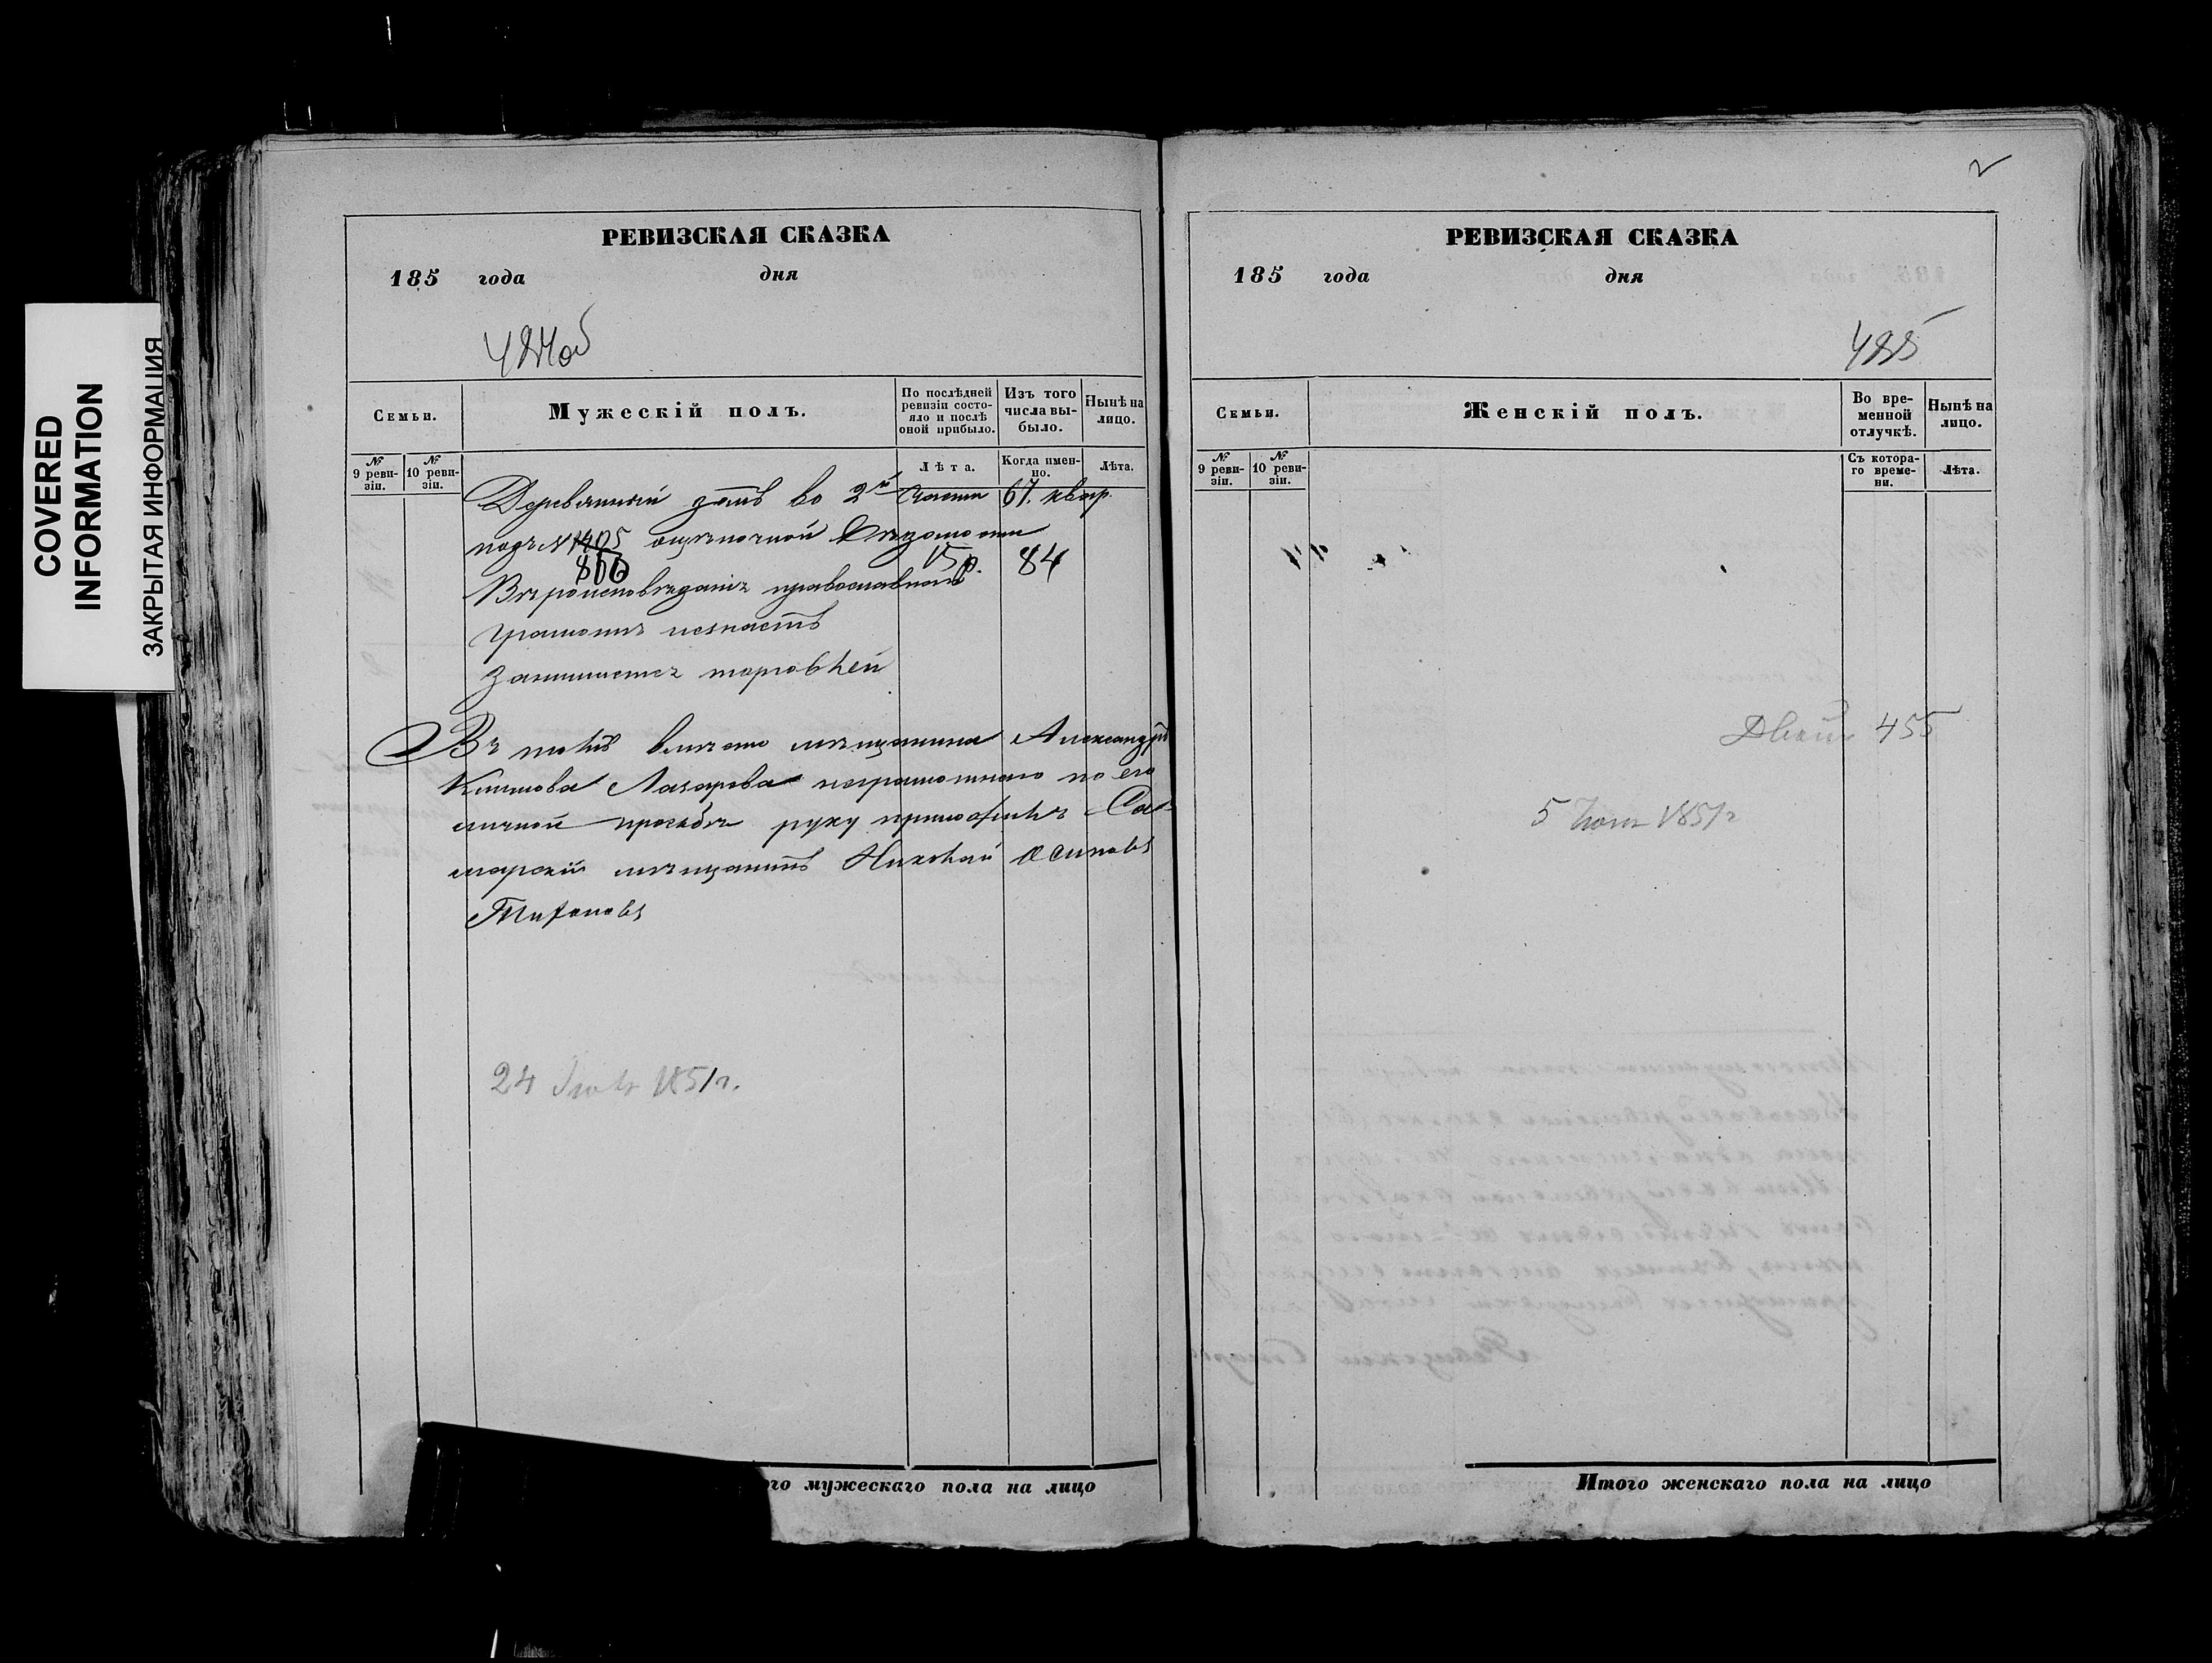 COVERED
INFORMATION
ЗАКРЫТАЯ ИНФОРМАЦИЯ
РЕВИЗСКАЯ СКАЗКА
185 года дня
484об
Семьи.
Мужескій полъ.
По послѣдней ревизіи состояло и послѣ оной прибыло.
Изъ того числа выбыло.
Нынѣ на лицо.
№ 9 ревизіи.
№ 10 ревизіи.
Лѣта.
Когда именно.
Лѣта.
Деревянный домъ во 2й части 67. квар.
подъ № 1405 оцѣночной
866 15 р. 84
Вѣроисповѣданіе православнаго
грамотѣ незнаетъ
Занимается торговлей
Въ томъ вмѣсто мѣщанина Александра
Климова Лазарева неграмотнаго по его
личной прозьбѣ руку приложилъ Са-
марскій мѣщанинъ Николай Осиповъ
24 1851г.
ого мужескаго пола на лицо
2
РЕВИЗСКАЯ СКАЗКА
185 года дня
485
Семьи.
Женскій полъ.
Во временной отлучкѣ.
Нынѣ на лицо.
№ 9 ревизіи.
№ 10 ревизіи.
Съ котораго времени.
Лѣта.
455
5 1851г
Итого женскаго пола на лицо